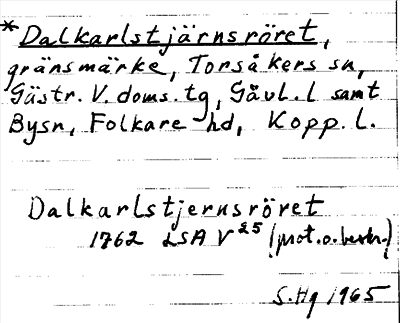 *Dalkarlstjärnsröret,
gränsmärke, Torsåkers sn,
Gästr. V. doms. tg, Gävl. l samt
Bysn, Folkare hd, Kopp. l.
Dalkarlstjernsröret
1762 LSA V 25 (prot. o. beskr.)
S. Hg 1965